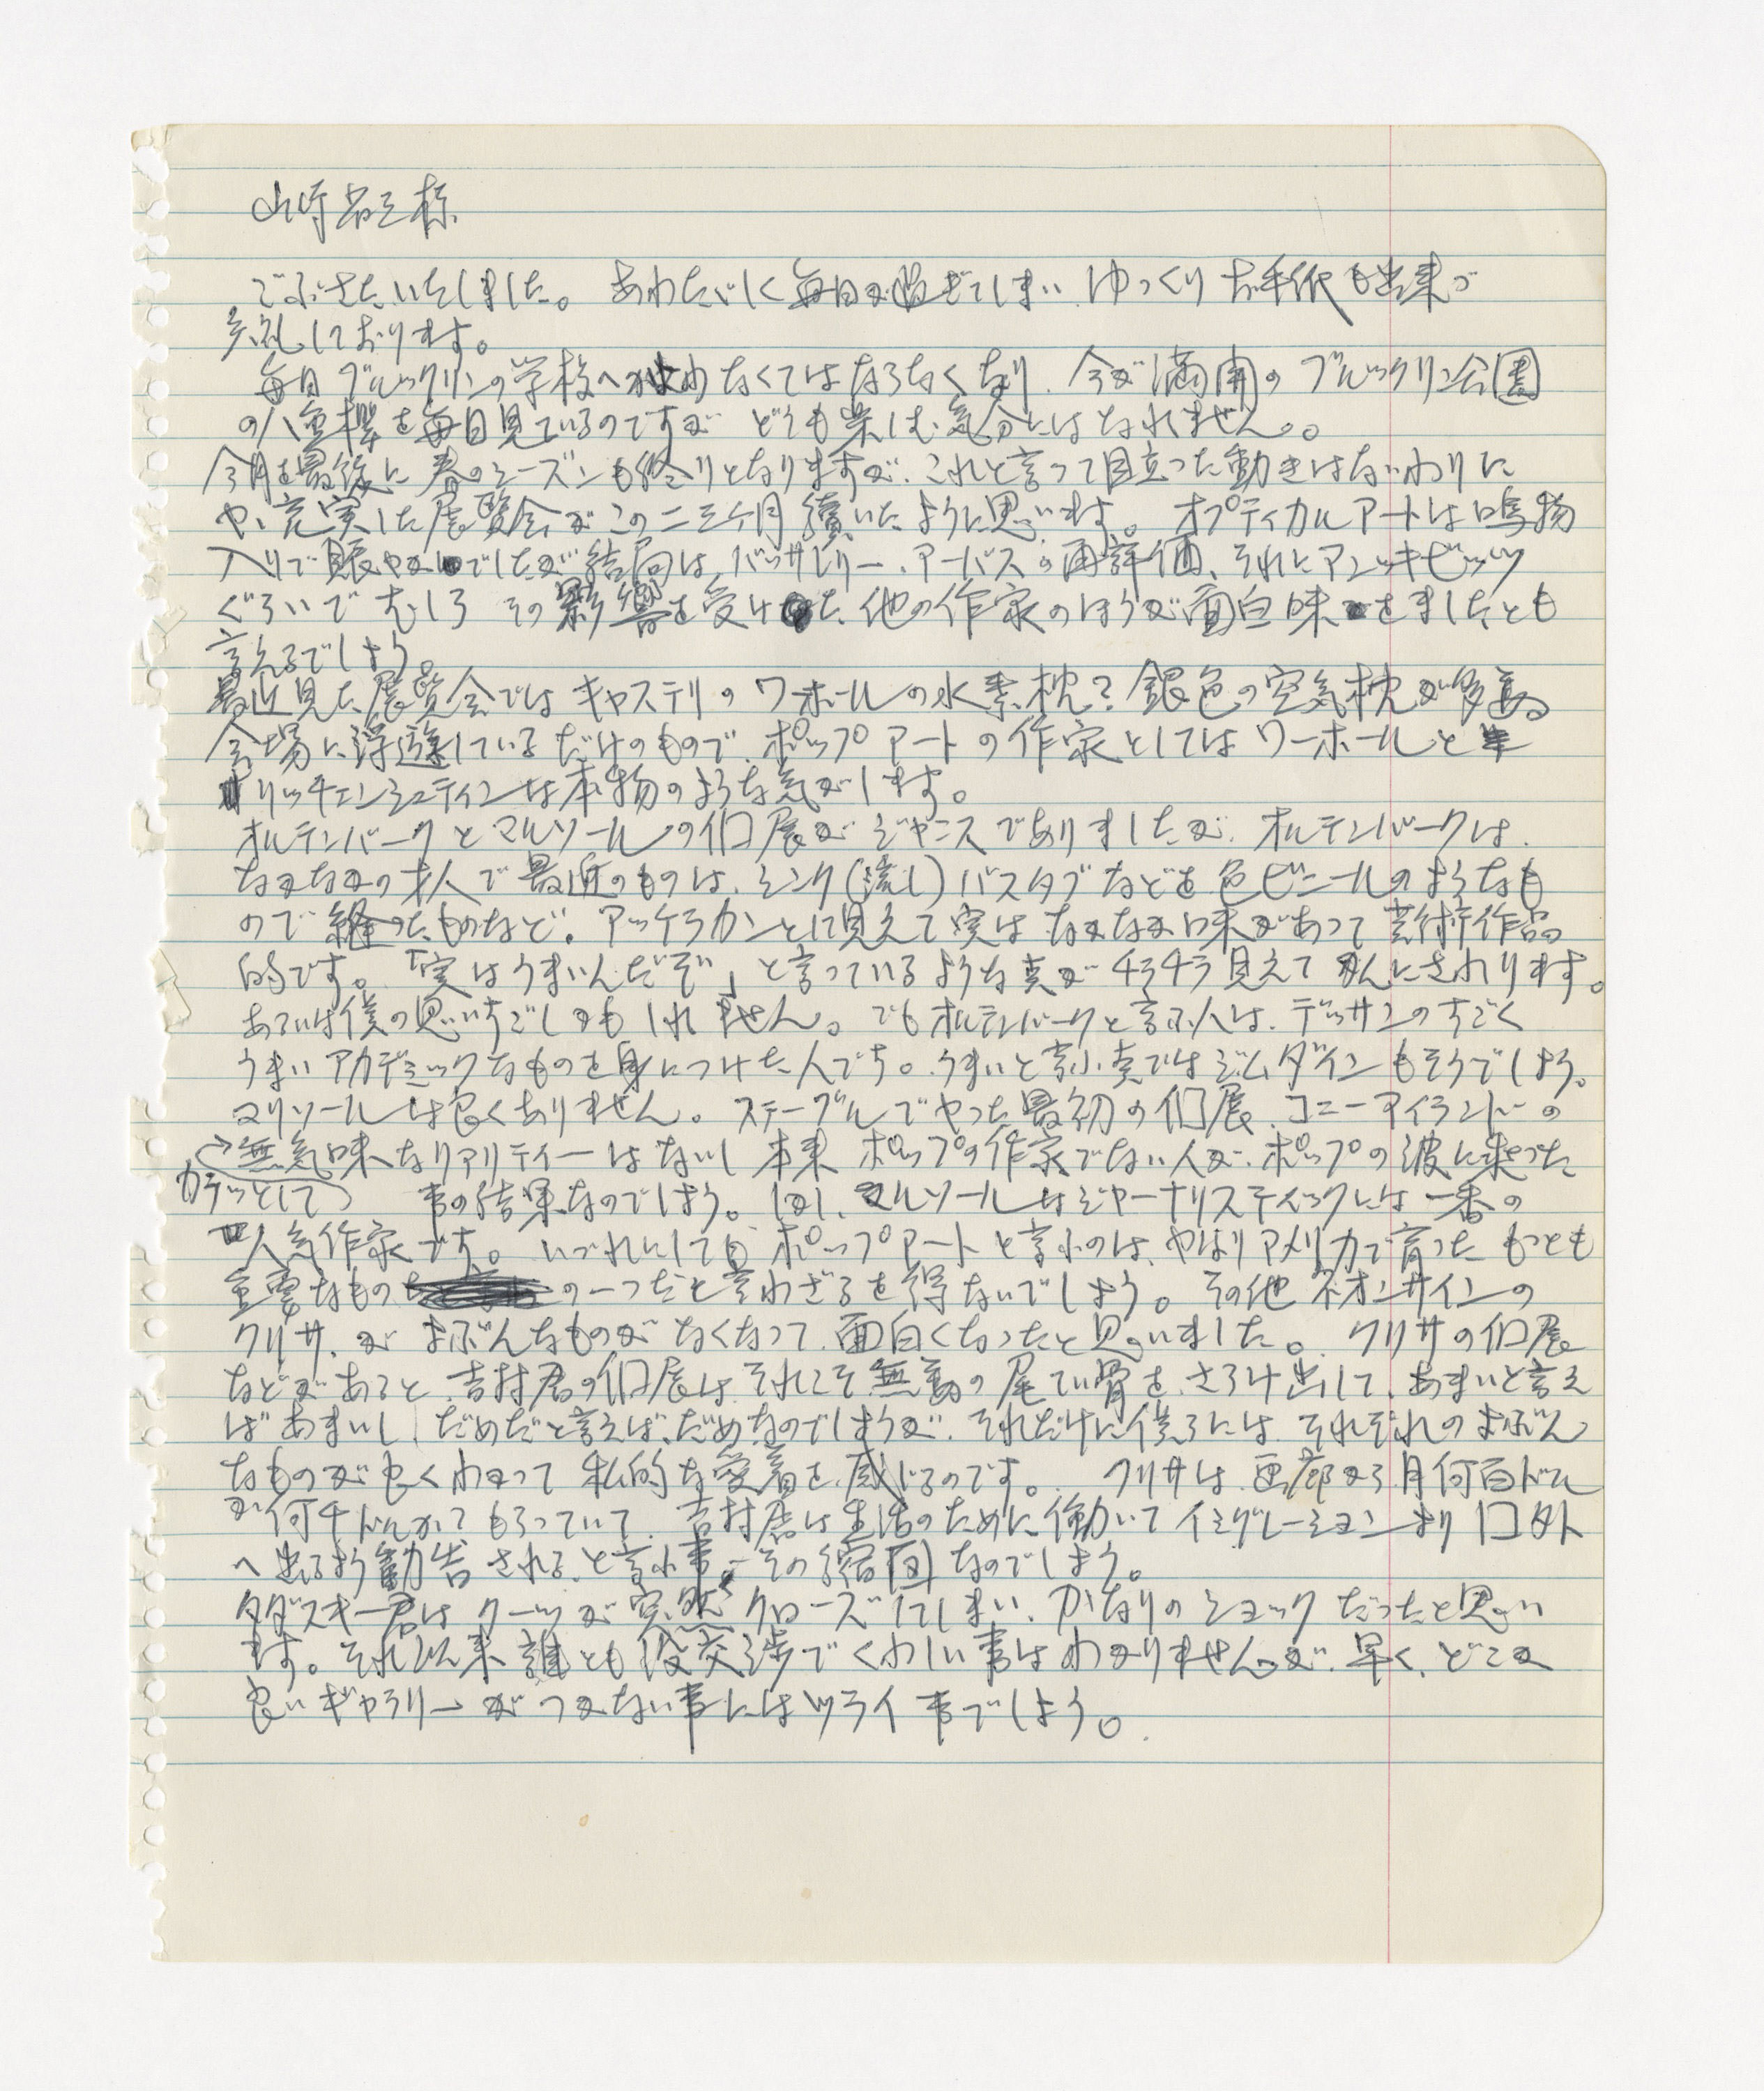 山崎省三様
ごぶさたいたしました。 あわただしく毎日が過ぎてしまい ゆっくり お手紙も出来づ
失礼しております。
毎日 ブルックリンの学校へ かよわなくてはならなくなり、今が満開の ブルックリン公園
の八重桜を毎日見ているのですが どうも楽しむ気分にはなれません。
今月を最後に 春のシーズンも終りとなりますが、これと言って目立った動きはないわりに
やゝ充実した展覧会がこの二三ケ月 續いたように思います。 オプティカルアートは鳴物
入りで賑やかでしたが結局は、バッサレリー、アーバスの再評価、それにアヌキビッツ
ぐらいで むしろ その影響を受けた 他の作家のほうが面白味をましたとも
言えるでしょう。
最近見た展覧会では キャステリの ワーホールの水素枕? 銀色の空気枕が多数
会場に浮遊しているだけのもので、ポップアートの作家としてはワーホールと
リッチェンシュティンは本物のような気がします。
オルデンバークとマルソールの個展が ジャニスでありましたが、オルデンバークは、
なかなかの才人で最近のものは、シンク(流し)バスタブなどを色ビニールのようなも
ので縫ったものなど。アッケラカンとして見えて実は なかなか味があって芸術作品
的です。「実はうまいんだぞ」と言っているような点がチラチラ見えて かんにさわります。
あるいは僕の思いすごしかもしれません。でもオルデンバークと言ふ人は、デッサンのすごく
うまいアカデミックなものを身につけた人です。うまいと言ふ点ではジムダインもそうでしょう。
マリソールは良くありません。ステーブルでやった最初の個展、コニーアイランドの
無気味なリアリティーはないし 本来 ポップの作家でない人が、ポップの波に乗った
カチッとして 事の結果なのでしょう。但し、マルソールはジャーナリスティックには一番の
人気作家です。いづれにしても ポップアートと言ふのは、やはりアメリカで育った もっとも
重要なものの一つだと言わざるを得ないでしょう。その他 ネオンサインの
クリサ、が よぶんなものが なくなって 面白くなったと思いました。クリサの個展
などがあると、吉村君の個展は、それこそ無数の尾てい骨を、さらけ出して、あまいと言え
ば あまいし だめだと言えば、だめなのでしょうが、それだけに僕らには それぞれの よぶん
なものが良くわかって 私的な愛着を、感じるのです。 クリサは、画廊から月何百ドル
か何千ドルかてもらっていて、吉村君は生活のために働いて イミグレーションより 国外
へ出るよう勧告される、と言ふ事、その縮図なのでしょう。
タダスキー君は クーツが突然 クローズしてしまい、かなりの ショックだったと思い
ます。それ以来 誰とも没交渉で くわしい事はわかりませんが、早く、どこか
良いギャラリーがつかない事にはツライ事でしょう。